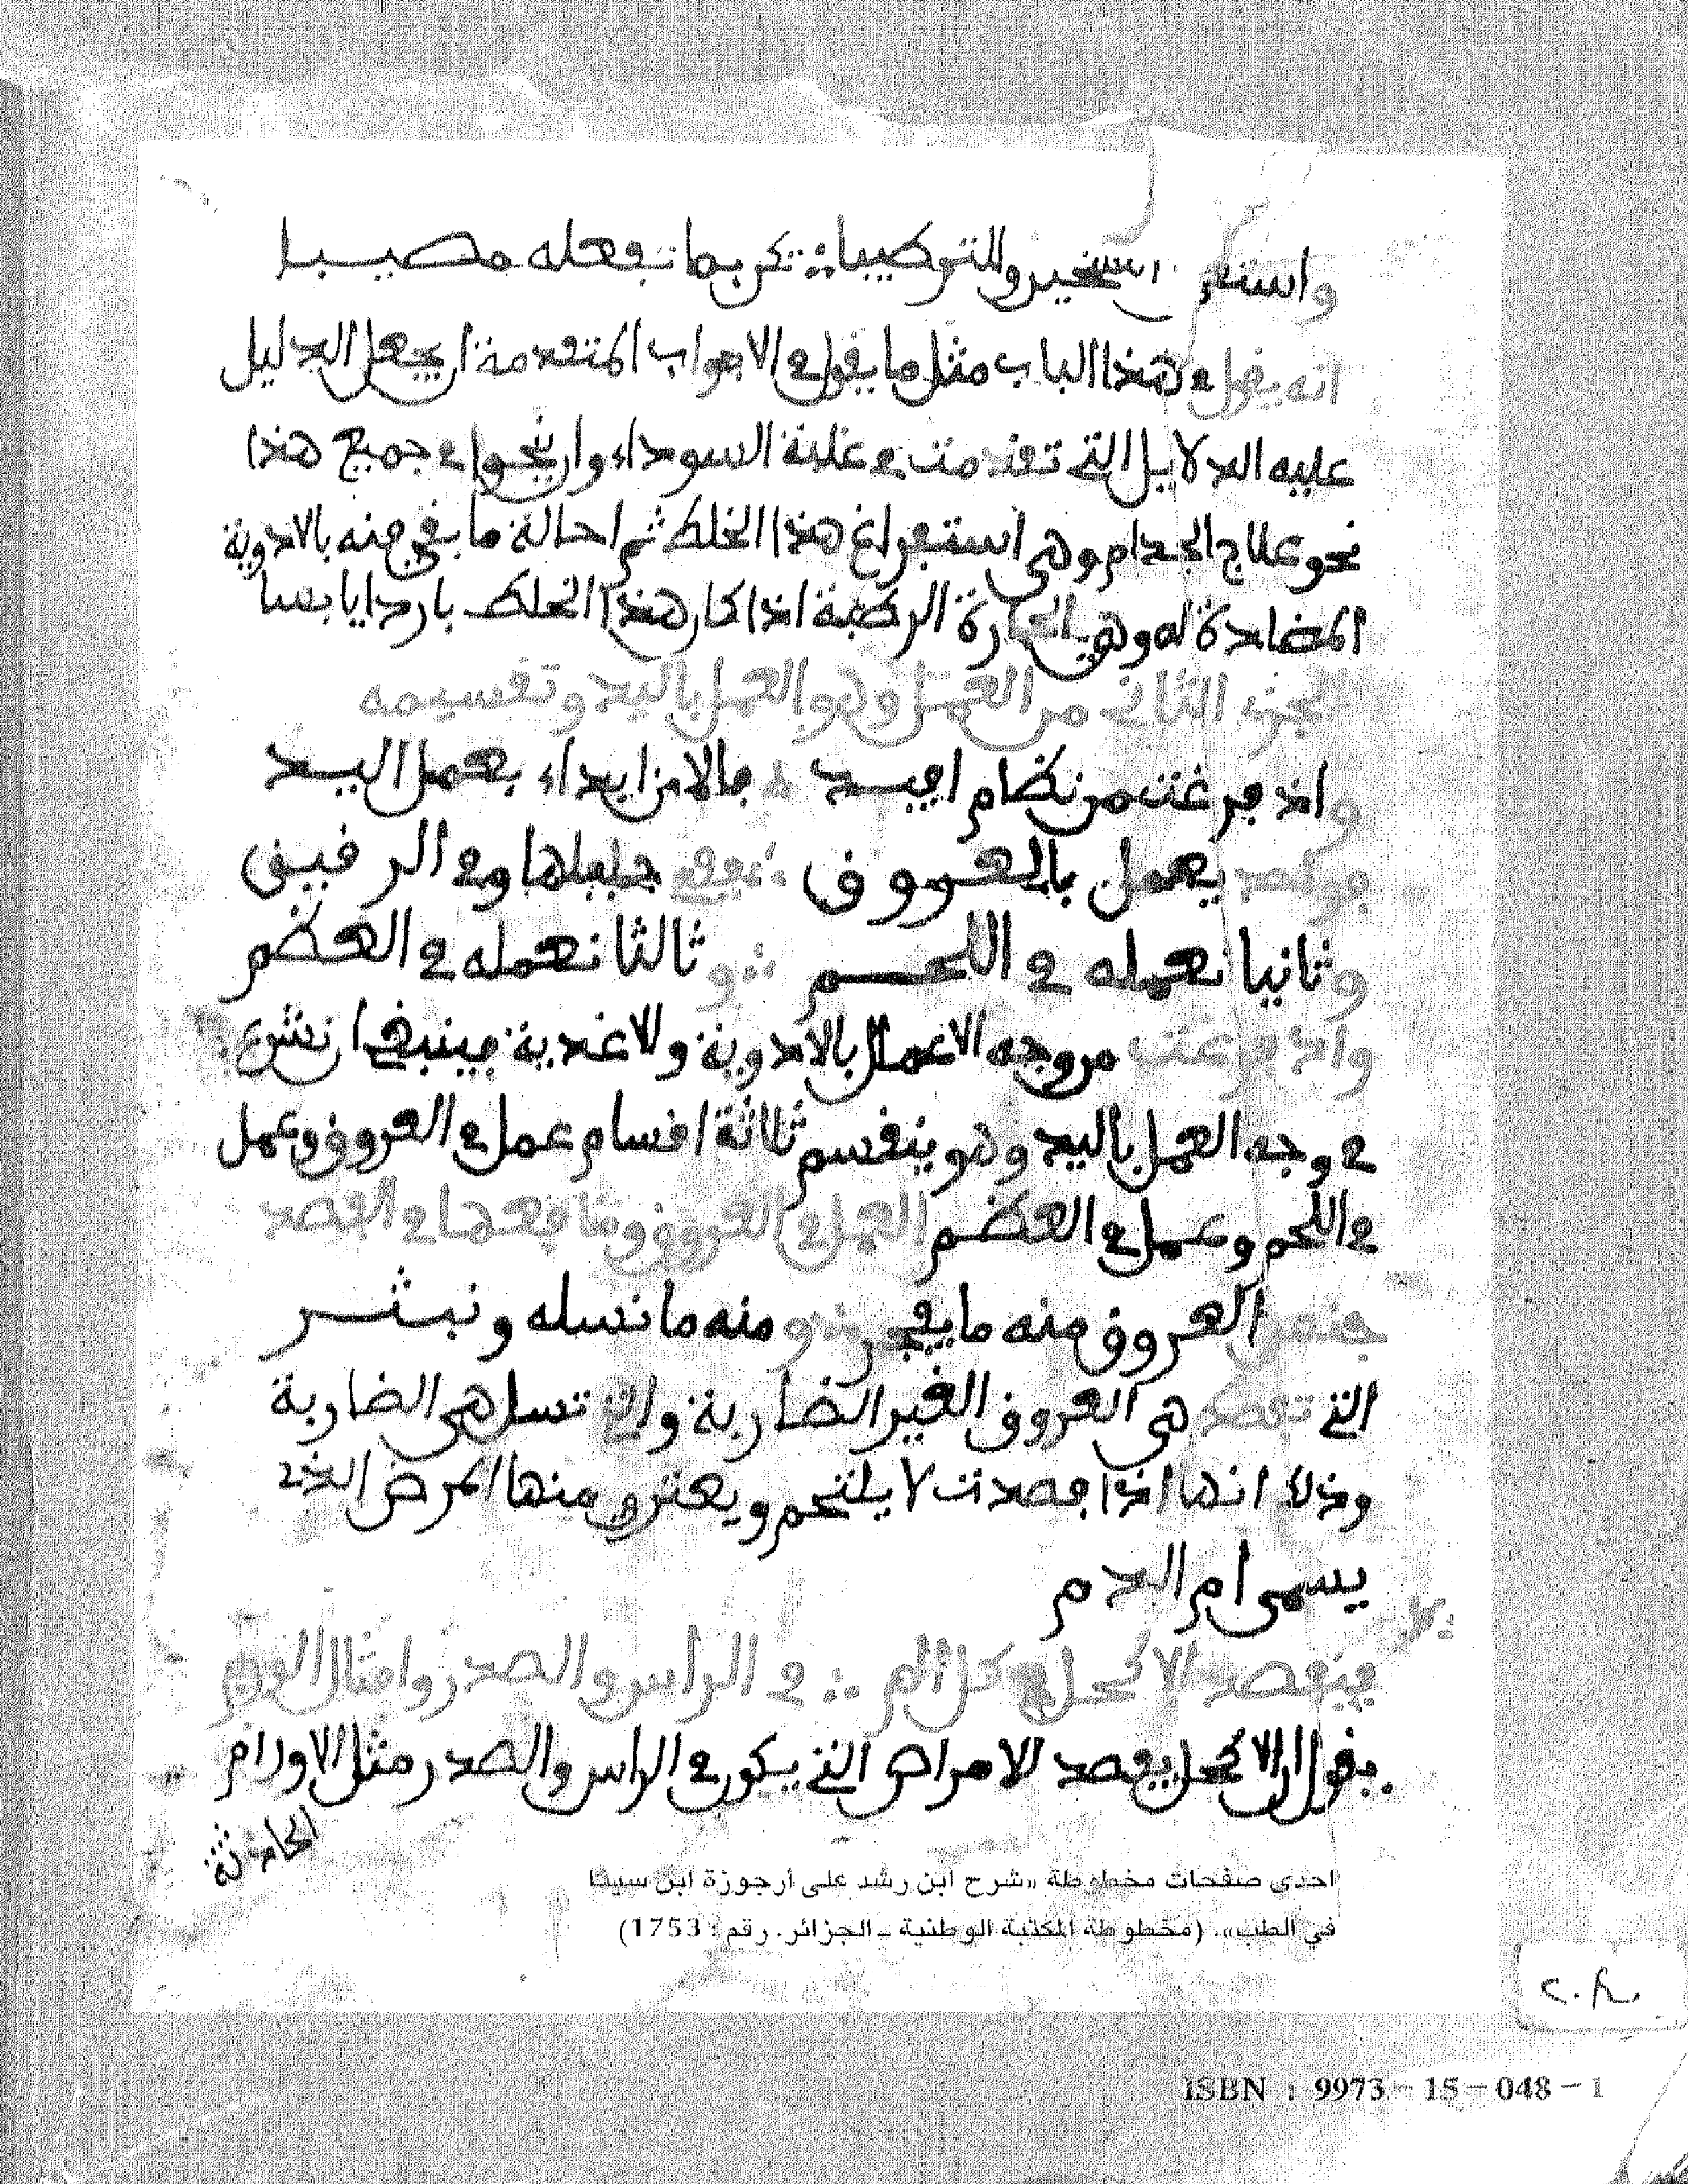 واستعمل التسخير والتركيبا ∴ تكن بما تفعله مصيبا
انه يفعل في هذا الباب مثل ما يقول في الابواب المتقدمة ان يجعل الدليل
عليه الدلايل التي تقدمت في غلبة السوداء وان ينحوا في جميع هذا
نحو علاج الجدام وهي استفراغ هذا الخلط ثم احالة ما بقي منه بالادوية
المضادة له وهي الحارة الرطبة اذا كان هذا الخلط باردا يابسا
الجزء الثاني من العمل وهو العمل باليد وتقسيمه
واذ فرغت من نظام افيد ∴ فالان ابداء بعمل اليد
فواحد يعمل بالعروق ∴ في جليلها وفي الرقيق
وثانيا نعمله في اللحم ∴ وثالثا نعمله في العظم
واذ فرغت من وجه الاعمال بالادوية ولاغدية فينبغي ان نشرع
في وجه العمل باليد وهو ينقسم ثلاثة اقسام عمل في العروق وعمل
في اللحم وعمل في العظم العمل في العروق ومنافعها في الفصد
جنس العروق منه ما يفجر ∴ ومنه ما نسله ونبثر
التي تفصد هي العروق الغير الضاربة والتي تسل هي الضاربة
وذلك انها اذا فصدت لا يلتحم ويعترى منها المرض الذي
يسمى ام الدم
فيفصد الاكحل في كل الم ∴ في الراس والصدر وامثال الورم
يقول ان الاكحل يفصد الامراض التي يكون في الراس والصدر مثل الاورام
الحادثة
احدى صفحات مخطوطة «شرح ابن رشد على أرجوزة ابن سينا
في الطب». (مخطوطة المكتبة الوطنية ـ الجزائر. رقم : 1753)
ISBN : 9973 - 15 - 048 - 1